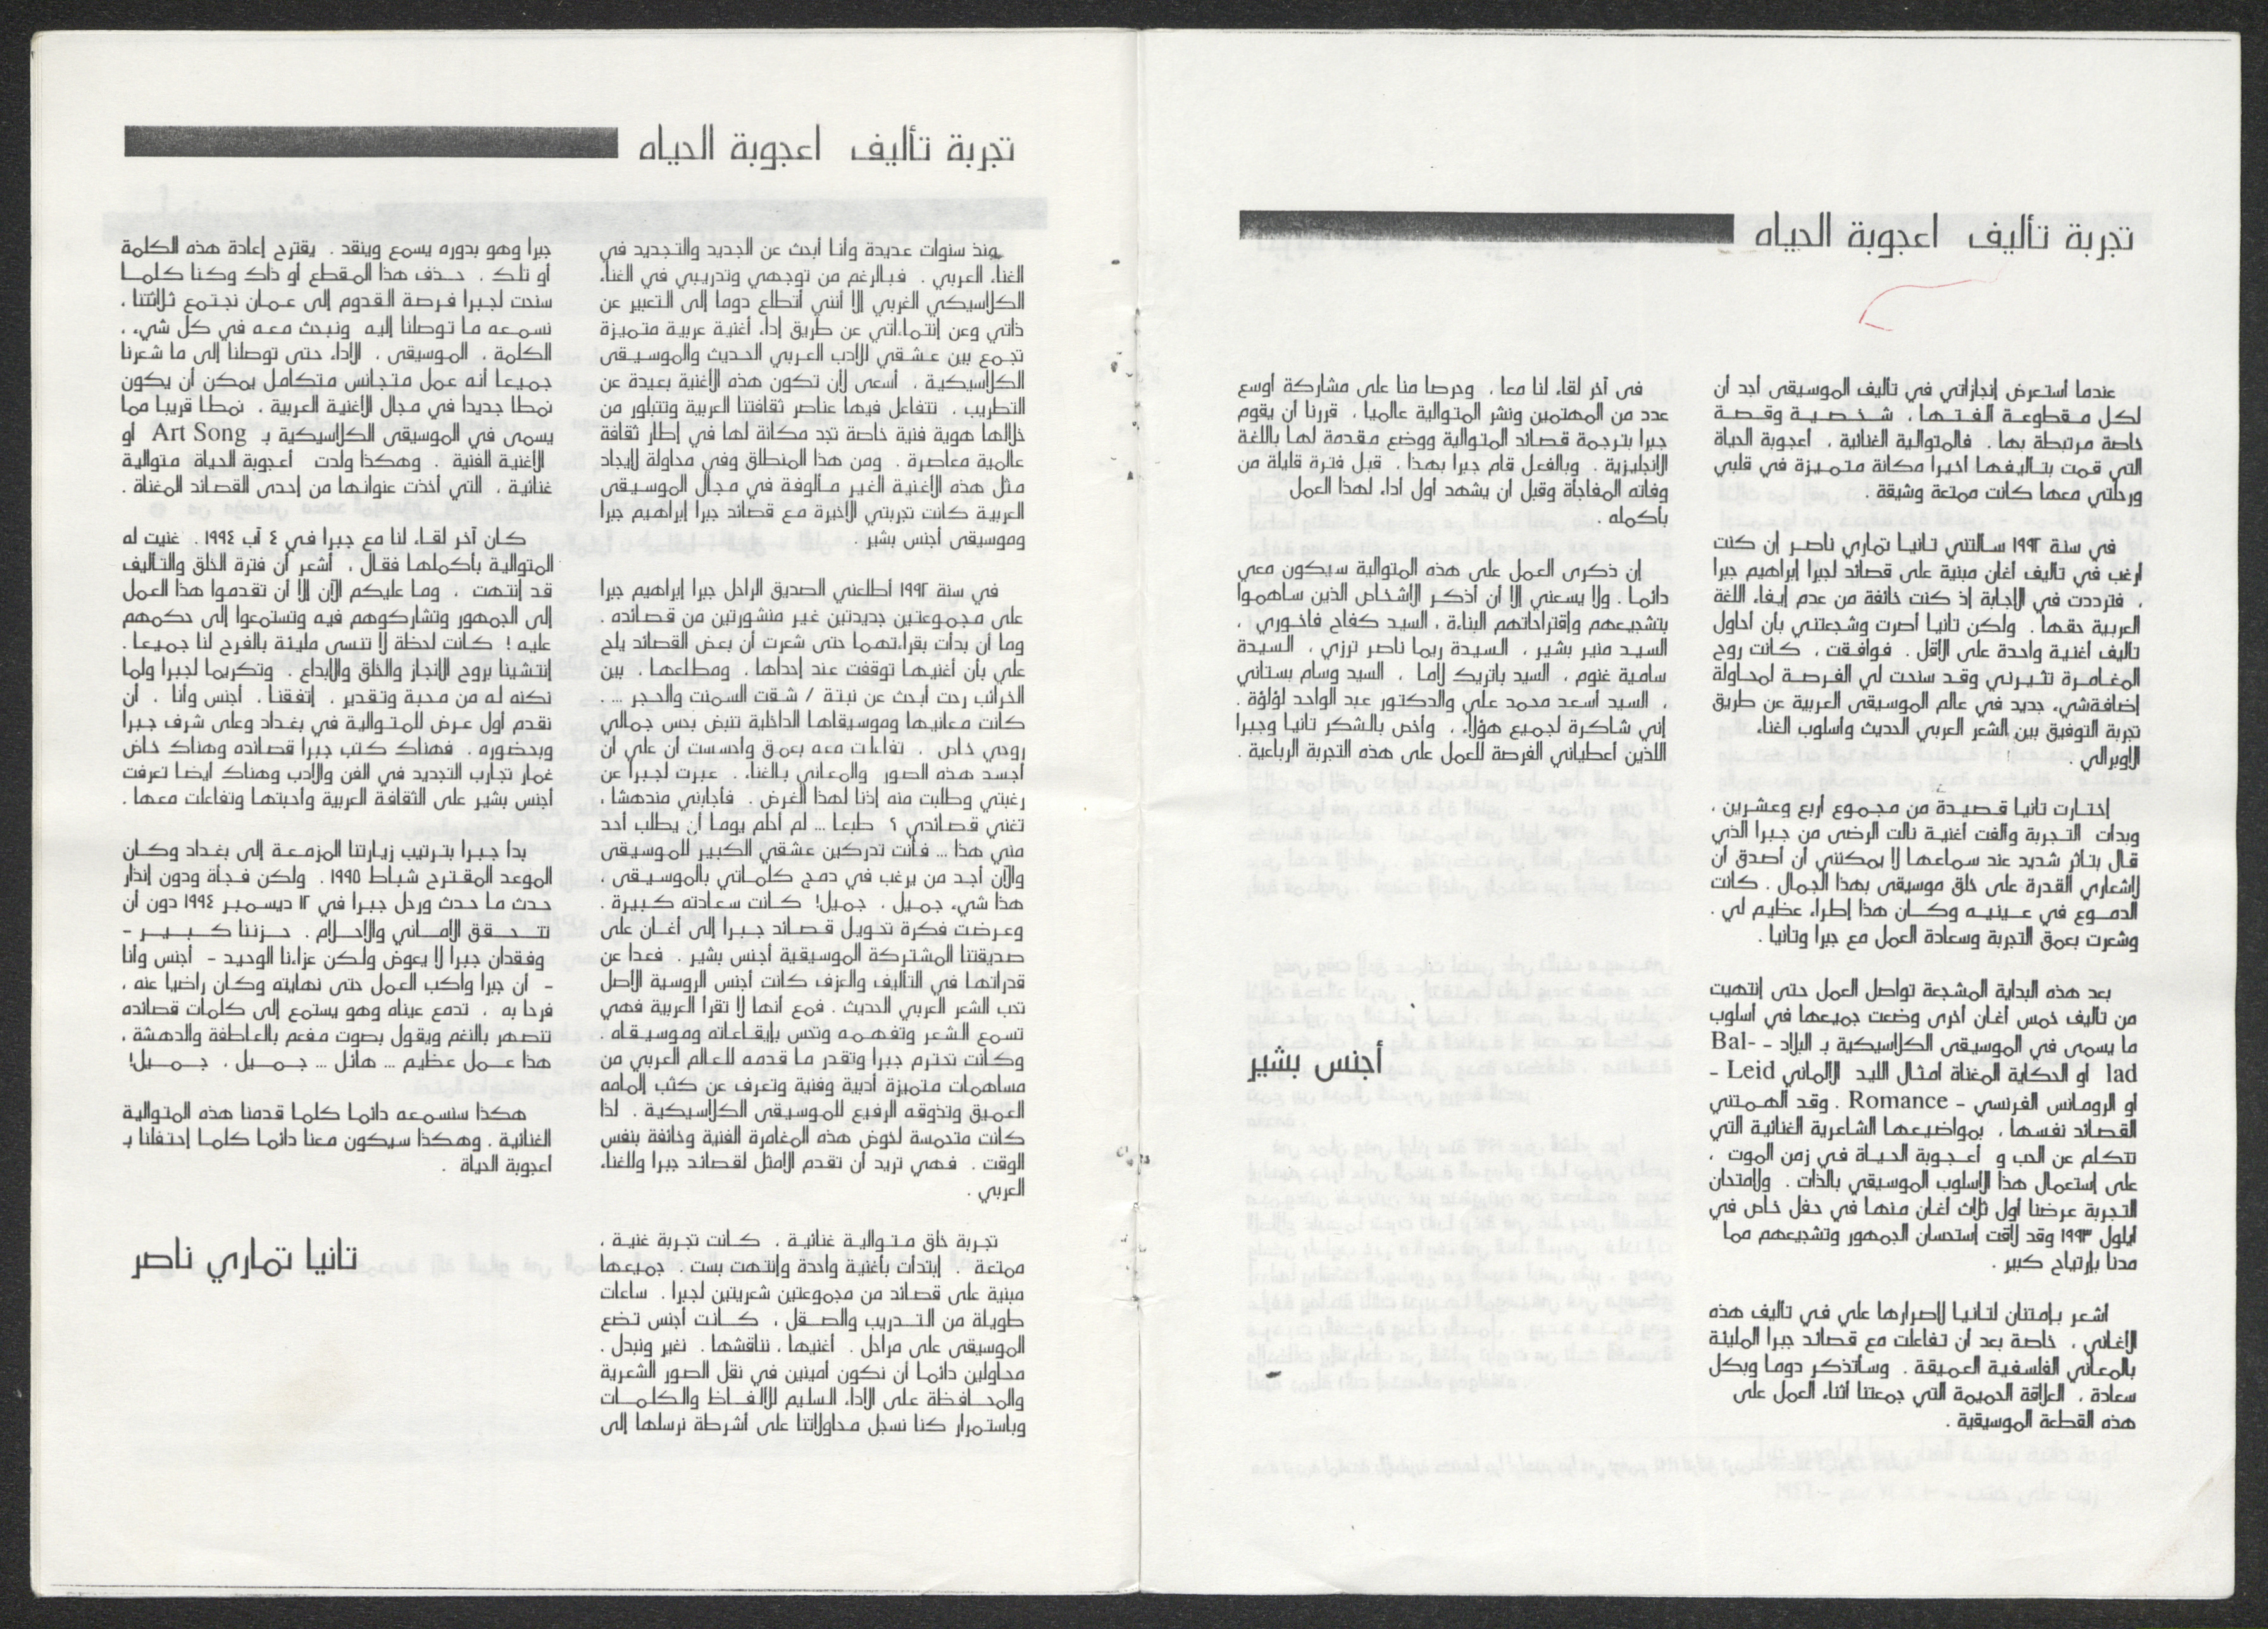 تجربة تأليف اعجوبة الحياه
عندما أستعرض إنجازاتي في تاليف الموسيقى أجد أن
لكل مقطوعة الفتها، شخصية وقصة
خاصة مرتبطة بها. فالمتوالية الغنائية، أعجوبة الحياة
التي قمت بتاليفها أخيرا مكانة متميزة في قلبي
ورحلتي معها كانت ممتعة وشيقة.
في سنة ١٩٩٢ سالتني تانيا تماري ناصر إن كنت
ارغب في تاليف أغان مبنية على قصائد لجبرا إبراهيم جبرا
، فترددت في الإجابة إذ كنت خائفة من عدم إيفاء اللغة
العربية حقها. ولكن تانيا أصرت وشجعتني بأن أحاول
تاليف أغنية واحدة على الاقل. فوافقت، كانت روح
المغامرة تثيرني وقد سنحت لي الفرصة لمحاولة
إضافةشيء جديد في عالم الموسيقى العربية عن طريق
تجربة التوفيق بين الشعر العربي الحديث وأسلوب الغناء
الأوبرالي.
إختارت تانيا قصيدة من مجموع أربع وعشرين،
وبدات التجربة والفت أغنية نالت الرضى من جبرا الذي
قال بتاثر شديد عند سماعها لا يمكنني أن أصدق أن
لأشعاري القدرة على خلق موسيقى بهذا الجمال. كانت
الدموع في عينيه وكان هذا إطراء عظيم لي.
وشعرت بعمق التجربة وسعادة العمل مع جبرا وتانيا.
بعد هذه البداية المشجعة تواصل العمل حتى إنتهيت
من تاليف خمس أغان أخرى وضعت جميعها في أسلوب
ما يسمى في الموسيقى الكلاسيكية بـ البلاد - Bal-
lad او الحكاية المغناة امثال الليد الالماني Leid -
او الرومانس الفرنسي - Romance. وقد الهمتني
القصائد نفسها، بمواضيعها الشاعرية الغنائية التي
تتكلم عن الحب و أعجوبة الحياة في زمن الموت،
على إستعمال هذا الأسلوب الموسيقي بالذات. ولامتحان
التجربة عرضنا أول ثلاث أغان منها في حفل خاص في
ايلول ١٩٩٣ وقد لاقت إستحسان الجمهور وتشجيعهم مما
مدنا بإرتياح كبير.
اشعر بإمتنان لتانيا لاصرارها علي في تاليف هذه
الاغاني، خاصة بعد أن تفاعلت مع قصائد جبرا المليئة
بالمعاني الفلسفية العميقة. وساتذكر دوما وبكل
سعادة، العلاقة الحميمة التي جمعتنا اثناء العمل على
هذه القطعة الموسيقية.
فى آخر لقاء لنا معا، وحرصا منا على مشاركة أوسع
عدد من المهتمين ونشر المتوالية عالميا، قررنا أن يقوم
جبرا بترجمة قصائد المتوالية ووضع مقدمة لها باللغة
الإنجليزية. وبالفعل قام جبرا بهذا، قبل فترة قليلة من
وفاته المفاجأة وقبل أن يشهد أول أداء لهذا العمل
بأكمله.
إن ذكرى العمل على هذه المتوالية سيكون معي
دائما. ولا يسعني إلا أن أذكر الأشخاص الذين ساهموا
بتشجيعهم وإقتراحاتهم البناءة، السيد كفاح فاخوري،
السيد منير بشير، السيدة ريما ناصر ترزي، السيدة
سامية غنوم، السيد باتريك لاما، السيد وسام بستاني
، السيد أسعد محمد علي والدكتور عبد الواحد لؤلؤة.
إني شاكرة لجميع هؤلاء، وأخص بالشكر تانيا وجبرا
اللذين أعطياني الفرصة للعمل على هذه التجربة الرباعية.
أجنس بشير
تجربة تأليف اعجوبة الحياه
منذ سنوات عديدة وأنا أبحث عن الجديد والتجديد في
الغناء العربي. فبالرغم من توجهي وتدريبي في الغناء
الكلاسيكي الغربي إلا أنني أتطلع دوما إلى التعبير عن
ذاتي وعن إنتماءاتي عن طريق إداء أغنية عربية متميزة
تجمع بين عشقي للأدب العربي الحديث والموسيقى
الكلاسيكية. أسعى لأن تكون هذه الأغنية بعيدة عن
التطريب، تتفاعل فيها عناصر ثقافتنا العربية وتتبلور من
خلالها هوية فنية خاصة تجد مكانة لها في إطار ثقافة
عالمية معاصرة. ومن هذا المنطلق وفي محاولة لايجاد
مثل هذه الاغنية الغير مالوفة في مجال الموسيقى
العربية كانت تجربتي الأخيرة مع قصائد جبرا إبراهيم جبرا
وموسيقى أجنس بشير.
في سنة ١٩٩٢ أطلعني الصديق الراحل جبرا إبراهيم جبرا
على مجموعتين جديدتين غير منشورتين من قصائده.
وما أن بدأت بقراءتهما حتى شعرت أن بعض القصائد يلح
علي بأن أغنيها توقفت عند إحداها، ومطلعها، بين
الخرائب رحت أبحث عن نبتة / شقت السمنت والحجر ....
كانت معانيها وموسيقاها الداخلية تنبض بحس جمالي
روحي خاص، تفاعلت معه بعمق وأحسست أن علي أن
أجسد هذه الصور والمعاني بالغناء. عبرت لجبرا عن
رغبتي وطلبت منه إذنا لهذا الغرض. فأجابني مندهشا،
تغني قصائدي ؟ طبعا ... لم أحلم يوما أن يطلب أحد
مني هذا ... فأنت تدركين عشقي الكبير للموسيقى
والآن أجد من يرغب في دمج كلماتي بالموسيقى،
هذا شيء جميل، جميل! كانت سعادته كبيرة.
وعرضت فكرة تحويل قصائد جبرا إلى أغان على
صديقتنا المشتركة الموسيقية أجنس بشير. فعدا عن
قدراتها في التأليف والعزف كانت أجنس الروسية الأصل
تحب الشعر العربي الحديث. فمع أنها لا تقرا العربية فهي
تسمع الشعر وتفهمه وتحس بإيقاعاته وموسيقاه.
وكانت تحترم جبرا وتقدر ما قدمه للعالم العربي من
مساهمات متميزة أدبية وفنية وتعرف عن كثب إلمامه
العميق وتذوقه الرفيع للموسيقى الكلاسيكية. لذا
كانت متحمسة لخوض هذه المغامرة الفنية وخائفة بنفس
الوقت. فهي تريد أن تقدم الأمثل لقصائد جبرا وللغناء
العربي.
تجربة خلق متوالية غنائية، كانت تجربة غنية،
ممتعة. إبتدأت بأغنية واحدة وإنتهت بست. جميعها
مبنية على قصائد من مجموعتين شعريتين لجبرا. ساعات
طويلة من التدريب والصقل، كانت أجنس تضع
الموسيقى على مراحل. أغنيها، نناقشها، نغير ونبدل،
محاولين دائما أن نكون أمينين في نقل الصور الشعرية
والمحافظة على الأداء السليم للالفاظ والكلمات
وباستمرار كنا نسجل محاولاتنا على أشرطة نرسلها إلى
جبرا وهو بدوره يسمع وينقد. يقترح إعادة هذه الكلمة
أو تلك، حذف هذا المقطع أو ذاك وكنا كلما
سنحت لجبرا فرصة القدوم إلى عمان نجتمع ثلاثتنا،
نسمعه ما توصلنا إليه ونبحث معه في كل شيء،
الكلمة، الموسيقى، الأداء حتى توصلنا إلى ما شعرنا
جميعا أنه عمل متجانس متكامل يمكن أن يكون
نمطا جديدا في مجال الاغنية العربية، نمطا قريبا مما
يسمى في الموسيقى الكلاسيكية بـ Art Song أو
الأغنية الفنية. وهكذا ولدت أعجوبة الحياة متوالية
غنائية، التي أخذت عنوانها من إحدى القصائد المغناة.
كان آخر لقاء لنا مع جبرا في ٤ آب ١٩٩٤. غنيت له
المتوالية بأكملها فقال، أشعر أن فترة الخلق والتأليف
قد إنتهت، وما عليكم الآن إلا أن تقدموا هذا العمل
إلى الجمهور وتشاركوهم فيه وتستمعوا إلى حكمهم
عليه ! كانت لحظة لا تنسى مليئة بالفرح لنا جميعا.
إنتشينا بروح الانجاز والخلق والأبداع. وتكريما لجبرا ولما
نكنه له من محبة وتقدير، إتفقنا، أجنس وأنا، أن
نقدم أول عرض للمتوالية في بغداد وعلى شرف جبرا
وبحضوره. فهناك كتب جبرا قصائده وهناك خاض
غمار تجارب التجديد في الفن والأدب وهناك أيضا تعرفت
أجنس بشير على الثقافة العربية وأحبتها وتفاعلت معها.
بدا جبرا بترتيب زيارتنا المزمعة إلى بغداد وكان
الموعد المقترح شباط ١٩٩٥. ولكن فجأة ودون إنذار
حدث ما حدث ورحل جبرا في ١٢ ديسمبر ١٩٩٤ دون أن
تتحقق الأماني والاحلام. حزننا كبير -
وفقدان جبرا لا يعوض ولكن عزاءنا الوحيد - أجنس وأنا
- أن جبرا واكب العمل حتى نهايته وكان راضيا عنه،
فرحا به، تدمع عيناه وهو يستمع إلى كلمات قصائده
تنصهر بالنغم ويقول بصوت مفعم بالعاطفة والدهشة،
هذا عمل عظيم ... هائل ... جميل، جميل!
هكذا سنسمعه دائما كلما قدمنا هذه المتوالية
الغنائية. وهكذا سيكون معنا دائما كلما إحتفلنا بـ
اعجوبة الحياة.
تانيا تماري ناصر